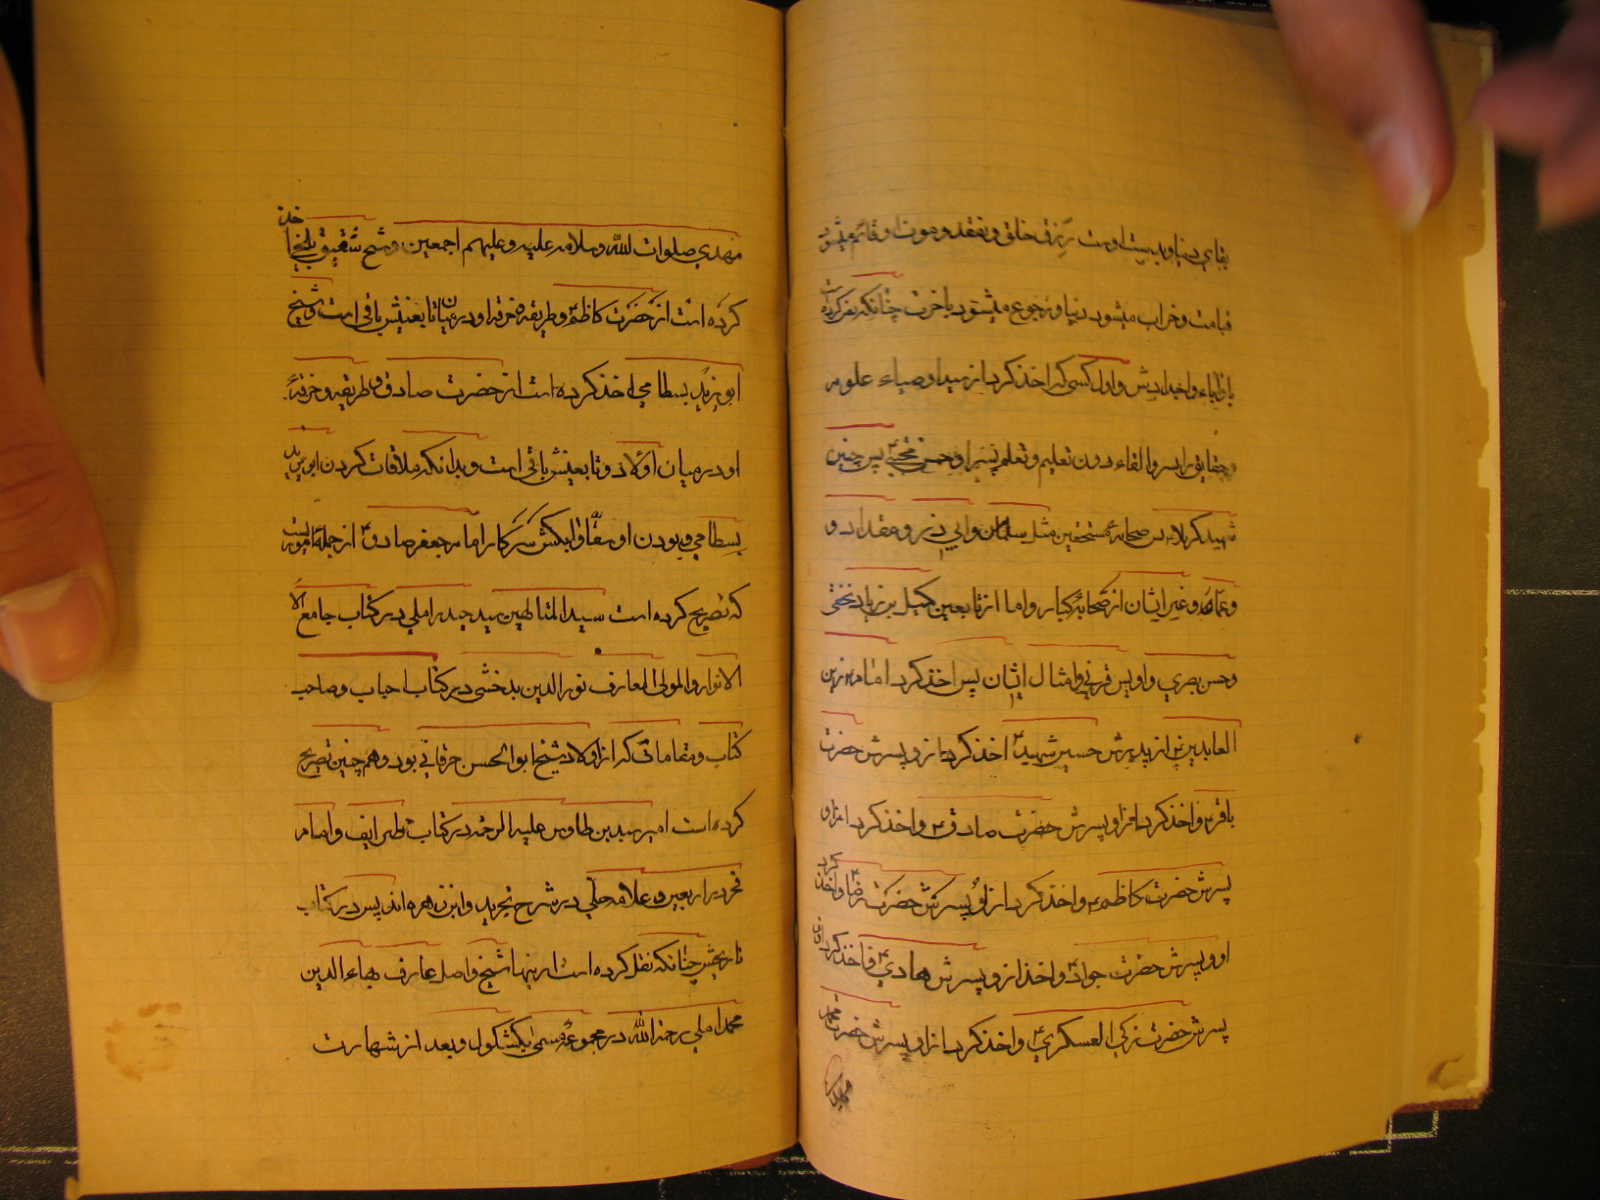 بقای دنیا وبدوست اوست رزق خلق وبفقد وموت او قائم میشود
قیامت وخراب میشود دنیا ورجوع میشود باخرت چنانکه نقل کرده است
باولیاء واجدادیش واول کسی که اخذ کرد از سید اوصیاء علوم
وحقایق را بسر والقاء دون تعلیم وتعلم پسر او حسن مجتبی پس حنین
شهید کربلا پس صحابهٔ مستحقین مثل سلمان وابی ذر ومقداد و
وعمار وغیر ایشان از صحابهٔ کبار واما از تابعین کمیل بن زیاد نخعی
وحسن بصری واویس قرنی وامثال ایشان پس اخذ کرد امام زین
العابدین از پدرش حسین شهید اخذ کرد از و پسرش حضرت
باقر واخذ کرد از او پسرش حضرت صادق واخذ کرد از او
پسرش حضرت کاظم واخذ کرد از او پسرش حضرت رضا واخذ کرد
او پسرش حضرت جواد واخذ از و پسرش هادی واخذ کرد از او
پسرش حضرت زکی العسکری واخذ کرد از او پسرش حضرت محمد
مهدی
مهدی صلوات الله وسلامه علیه وعلیهم اجمعین وشیخ شقیق بلخی اخذ
کرده است از حضرت کاظم وطریقه وخرقه او در میان تابعینش باقی است وشیخ
ابو یزید بسطامی اخذ کرده است از حضرت صادق وطریقه وخرقهٔ
او در میان اولاد وتابعینش باقی است وبدانکه ملاقات کردن ابو یزید
بسطامی وبودن او سقا وآبکش سرکار امام جعفر صادق از جمله امور یست
که تصریح کرده است سید المتالهین سید حیدر املی در کتاب جامع الا
الانوار والمولی العارف نور الدین بدخشی در کتاب احباب وصاحب
کتاب ومقاماتی که از اولاد شیخ ابو الحسن خرقانی بود وهم چنین تصریح
کرده است امیر سید بن طاوس علیه الرحمه در کتاب طرایف وامام
فخر در اربعین وعلامه حلی در شرح تجرید وابن زهره اندلیس در کتاب
تاریخش چنانکه نقل کرده است از ینها شیخ واصل عارف بهاء الدین
محمد املی رحمة الله در مجموعهٔ مسمی بکشکول وبعد از شهادت